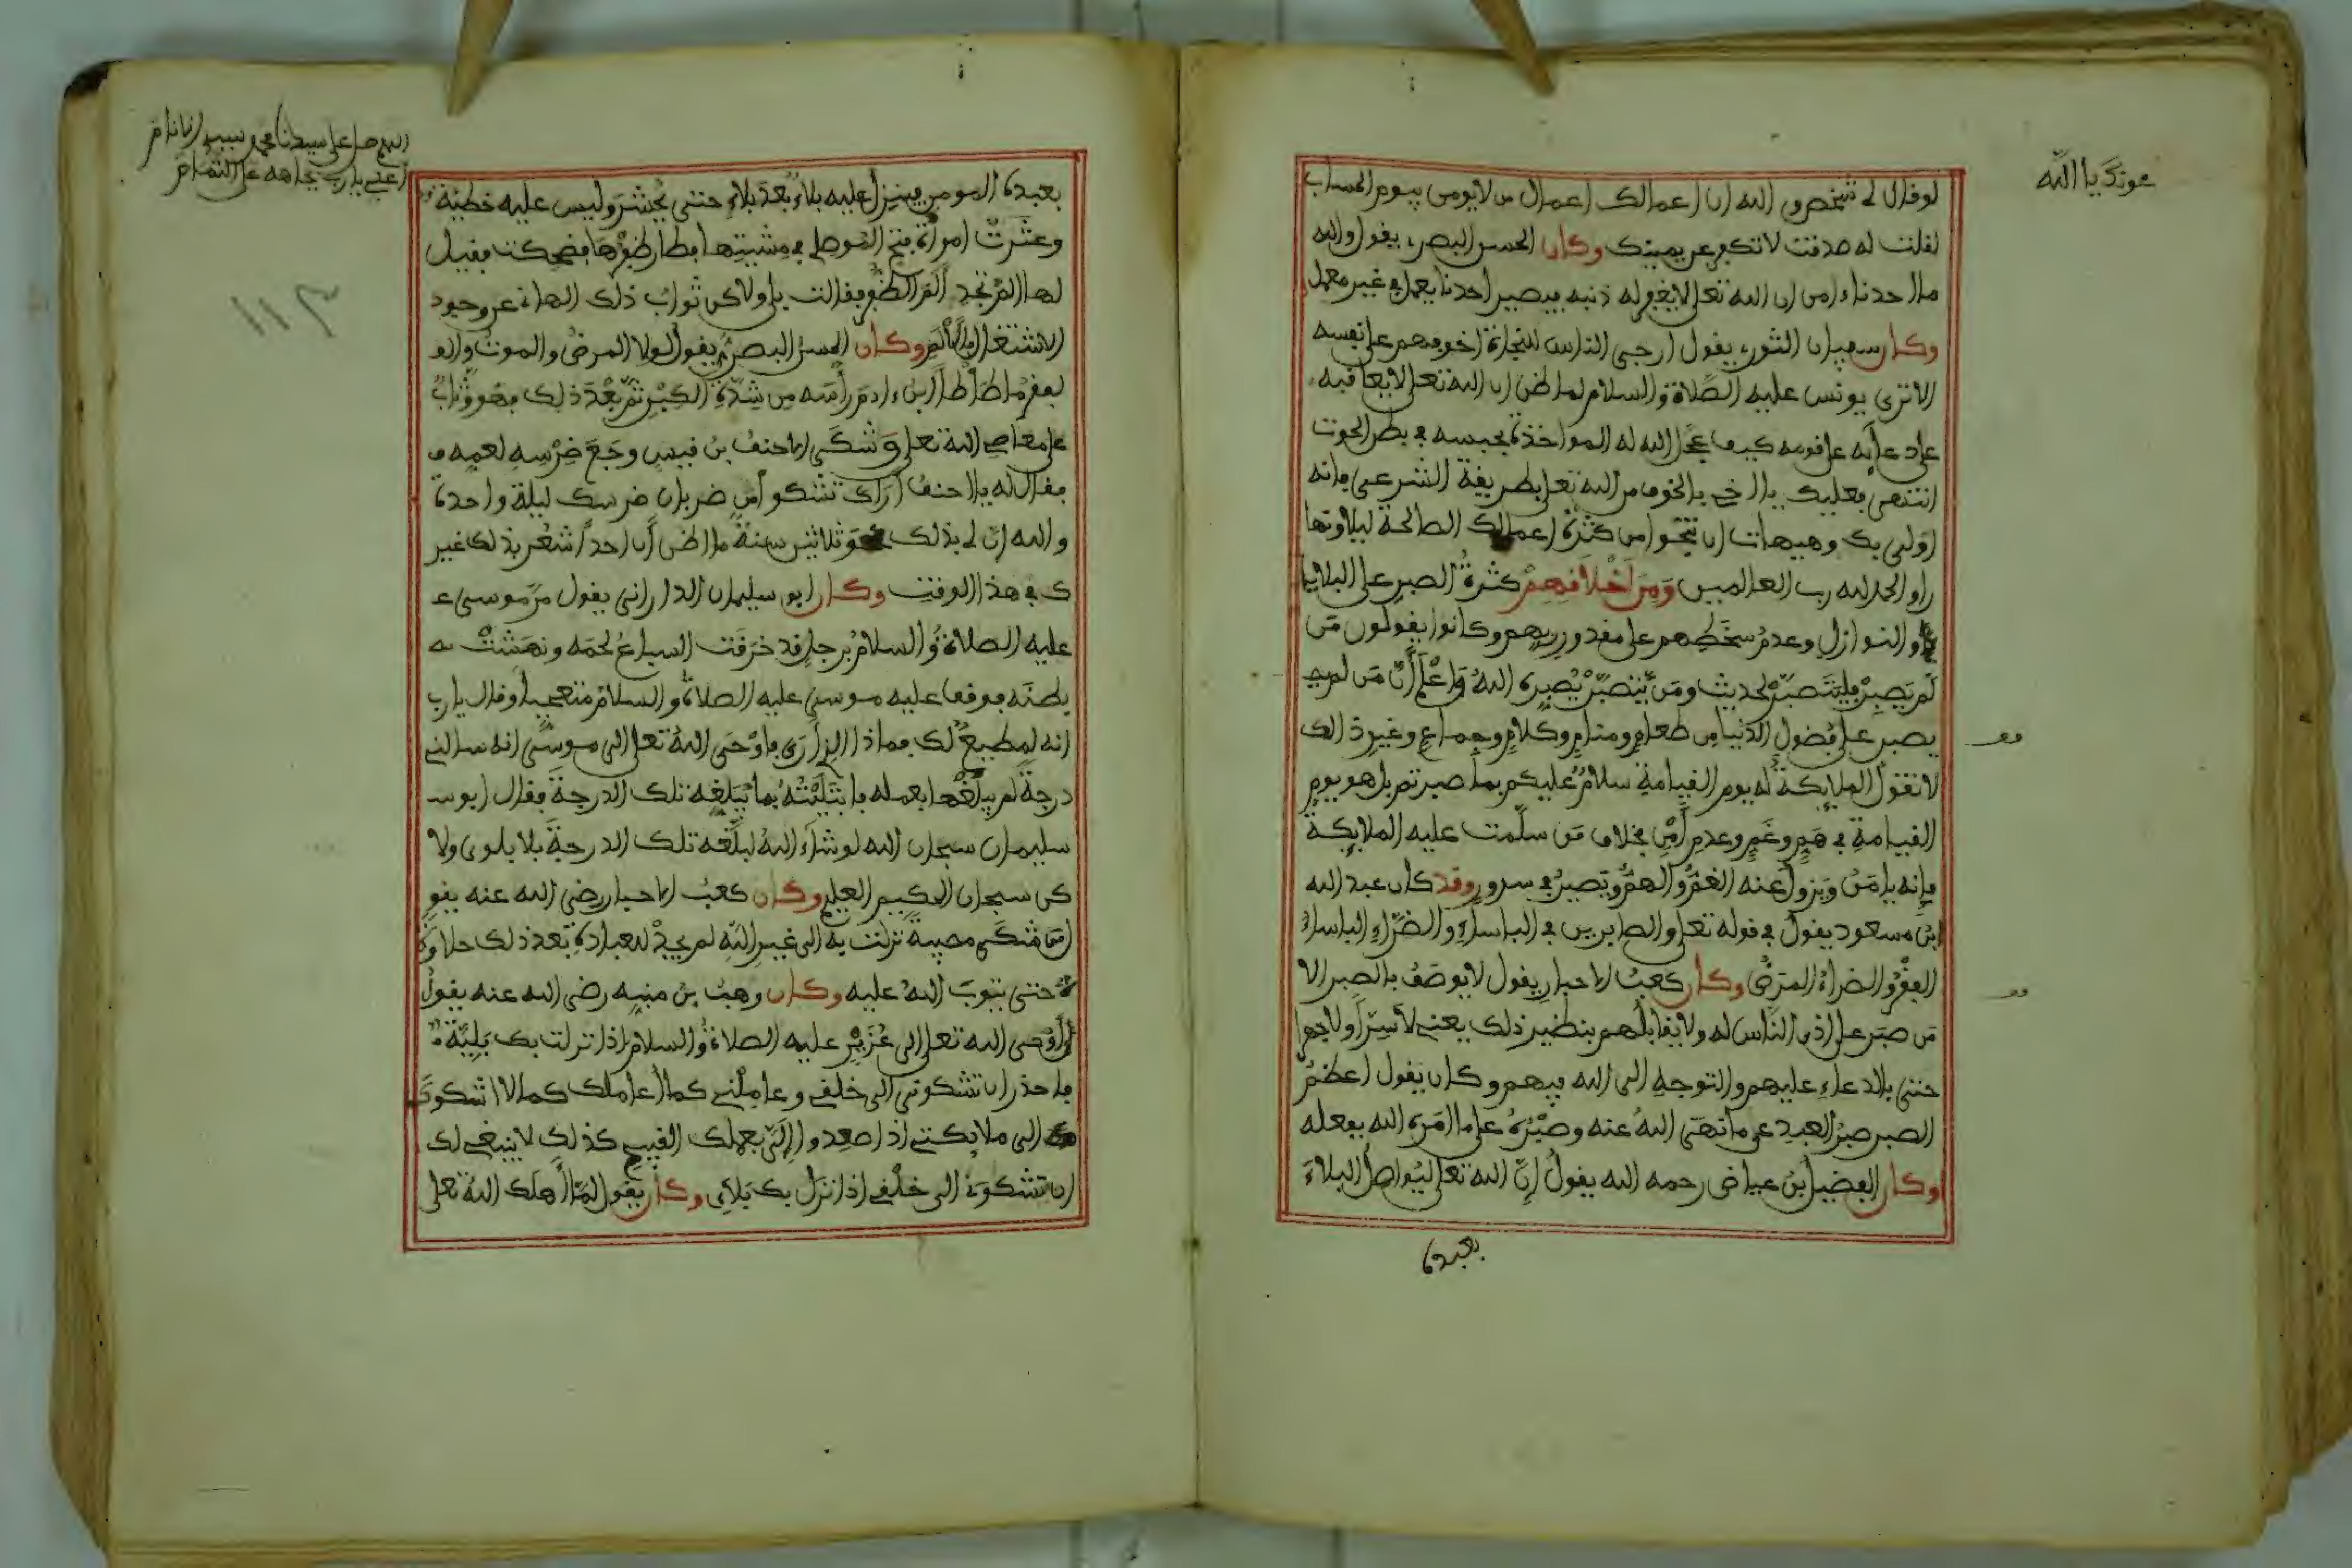 عونك يا الله
لو قال لي شخص والله ان اعمالك اعمال من لا يومن بيوم الحساب
لقلت له صدقت لا تكفر عن يمينك وكان الحسن البصري يقول والله
ما احدنا ءامن ان الله تعلى لا يغفر له ذنبه فيصير احدنا يعمل في غير معمل
وكان سفيان الثوري يقول ارجى الناس للنجاة اخوفهم على نفسه
الا ترى يونس عليه الصلاة والسلام لما ظن ان الله تعلى لا يعاقبه
على دعايه على قومه كيف عجل الله له المواخذة بحبسه في بطن الحوت
انتهى فعليك يا اخي بالخوف من الله تعلى بطريقة الشرعي فانه
اولى بك وهيهات ان تنجو من كثرة اعمالك الصالحة ليلا ونها
را والحمد لله رب العالمين ومن اخلاقهم كثرة الصبر على البلايا
والنوازل وعدم سخطهم على مقدور ربهم وكانوا يقولون من
لم يصبر فليتصبر لحديث ومن يتصبر يصبره الله واعلم ان من لم
يصبر على فضول الدنيا من طعام ومنام وكلام وجماع وغير ذالك
لا تقول الملايكة له يوم القيامة سلام عليكم بما صبرتم بل هو يوم
القيامة في هم وغم وعدم امن بخلاف من سلمت عليه الملايكة
فانه يامن ويزول عنه الغم والهم ويصير في سرور وقد كان عبد الله
ابن مسعود يقول في قوله تعلى والصابرين في الباساء والضراء الباساء
الفقر والضراء المرض وكان كعب الاحبار يقول لا يوصف بالصبر الا
من صبر على اذى الناس له ولا يقابلهم بنظير ذلك يعني لا سرا ولا جهرا
حتى بالدعاء عليهم والتوجه الى الله فيهم وكان يقول اعظم
الصبر صبر العبد عن ما نهى الله عنه وصبره على ما امره الله بفعله
وكان الفضيل بن عياض رحمه الله يقول ان الله تعلى ليواصل البلاء
بعبده
اللهم صل على سيدنا محمد سيد الانام
اعني يا رب بجاهه على التمام
بعبده المومن فينزل عليه بلاء بعد بلاء حتى يحشر وليس عليه خطيئة
وعثرت امرأة فتح الموصلي في مشيتها فطار ظفرها فضحكت فقيل
لها الم تجد الم الظفر فقالت بلى ولاكن ثواب ذلك الهاني عن وجود
الاشتغال بالالم وكان الحسن البصري يقول لولا المرض والموت والـ
ـفقر ما طأطأ ابن ءادم رأسه من شدة الكبر ثم بعد ذلك فهو وثاب
على معاصي الله تعلى وشكى الاحنف بن قيس وجع ضرسه لعمه
فقال له يا احنف اراك تشكو من ضربان ضرسك ليلة واحدة
والله ان لي بذلك نحو ثلاثين سنة ما اظن أن احدا شعر بذلك غير
ك في هذا الوقت وكان ابو سليمان الداراني يقول مر موسى
عليه الصلاة والسلام برجل قد خرقت السباع لحمه ونهشت
بطنه فوقف عليه موسى عليه الصلاة والسلام متعجبا وقال يا رب
انه لمطيع لك فماذا الذي ارى فاوحى الله تعلى الى موسى انه سالني
درجة لم يبلغها بعمله فابتليته بما يبلغه تلك الدرجة فقال ابو
سليمان سبحان الله لو شاء الله لبلغه تلك الدرجة بلا بلوى ولا
كن سبحان الحكيم العليم وكان كعب الاحبار رضي الله عنه يقو
من شكى مصيبة نزلت به الى غير الله لم يجد للعبادة بعد ذلك حلاو
ة حتى يتوب الله عليه وكان وهب بن منبه رضي الله عنه يقول
اوحى الله تعلى الى عزير عليه الصلاة والسلام اذا نزلت بك بلية
فاحذر ان تشكوني الى خلقي وعاملني كما اعاملك كما لا اشكوك
الى ملايكتي اذا صعدوا الي بعملك القبيح كذلك لا ينبغي لك
ان تشكوني الى خلقي اذا نزل بك بلاءي وكان يقول لما اهلك الله تعلى